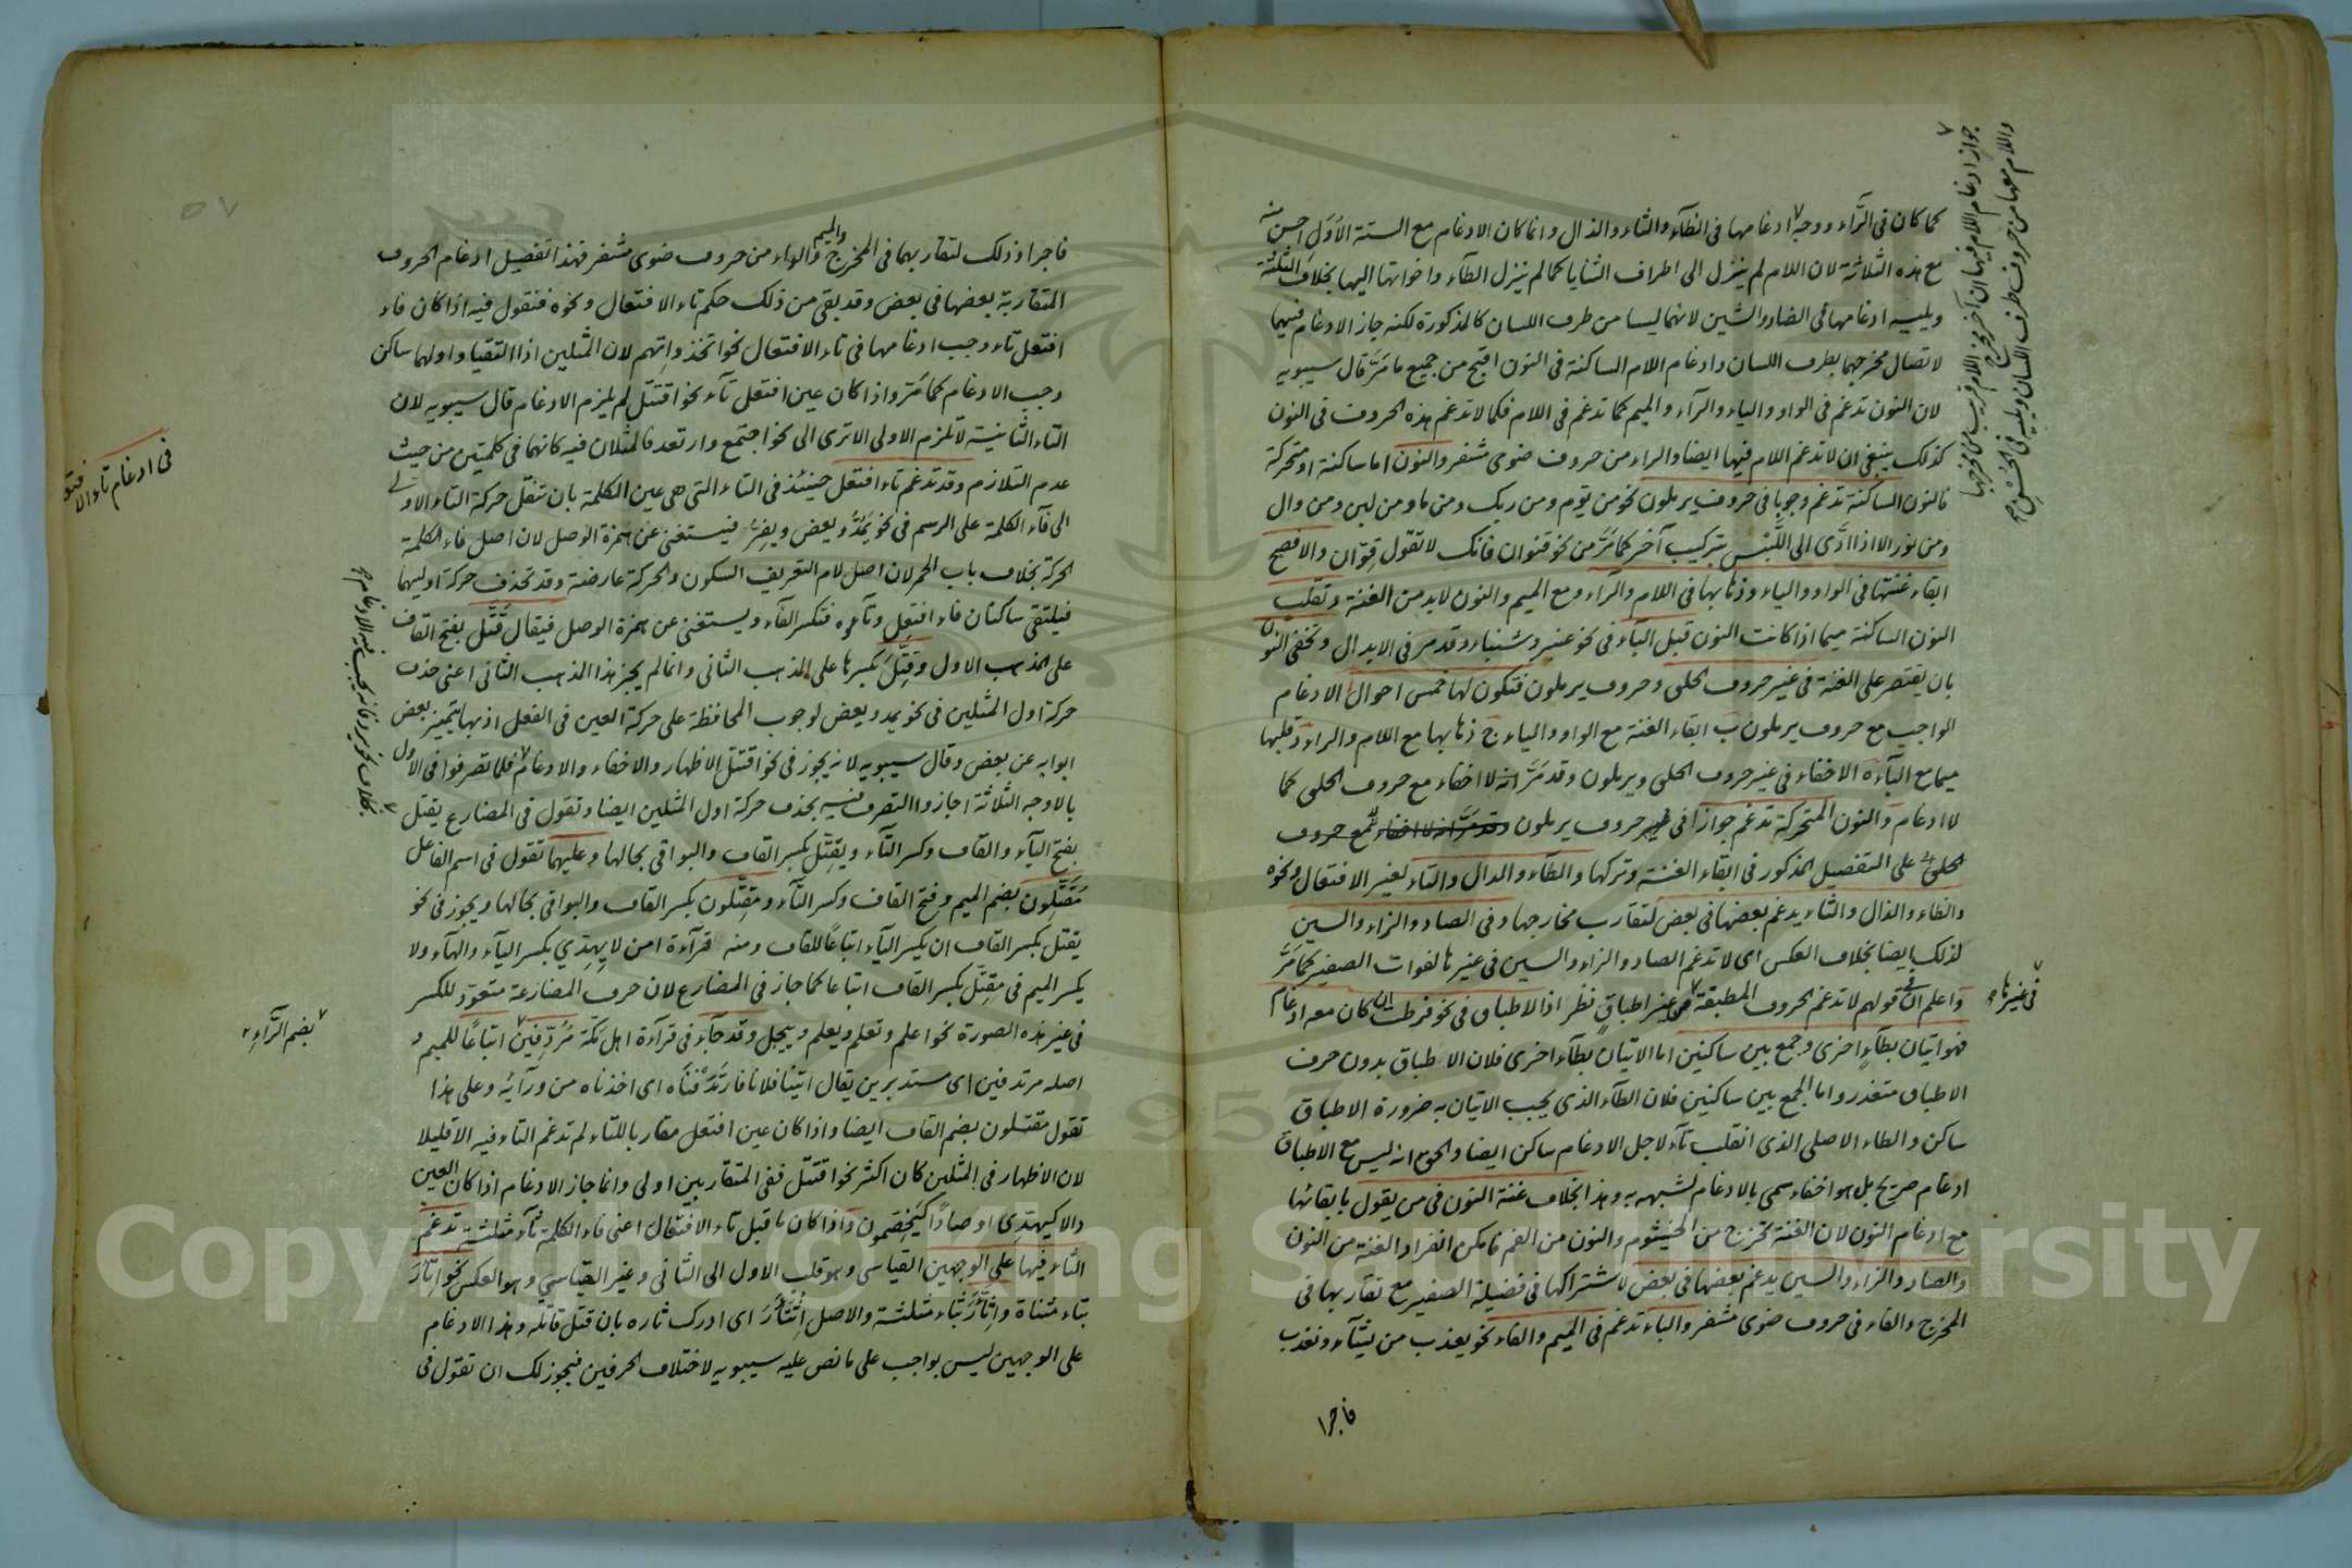 كما كان فى الرَّاء ووجه ادغامها فى الظآء والثاء والذال وانما كان الادغام مع الستة الاُوَل احسن منه
مع هذه الثلاثة لان اللام لم ينزل الى اطراف الثنايا كما لم ينزل الطآء واخواتها اليها بخلاف الثلثة
ويليه ادغامها فى الضاد والشين لانهما ليسا من طرف اللسان كالمذكورة لكنه جاز الادغام فيهما
لاتصال مخرجهما بطرف اللسان وادغام اللام الساكنة فى النون اقبح من جميع ما مَرَّ قال سيبويه
لان النون تدغم فى الواو والياء والرآء والميم كما تدغم فى اللام فكما لا تدغم هذه الحروف فى النون
كذلك ينبغى ان لا تدغم اللام فيها ايضا والراء من حروف ضوى مشفر والنون اما ساكنة او متحركة
فالنون الساكنة تدغم وجوبا فى حروف يرملون نحو من يوم ومن ربك ومن ماء ومن لبن ومن وال
ومن نور الا اذا ادَّى الى اللَّبْس بتركيب آخر كما مَرَّ من نحو قنوان فانك لا تقول قوّان والافصح
ابقاء غنتها فى الواو والياء وذهابها فى اللام والرآء ومع الميم والنون لابد من الغنة وتقلب
النون الساكنة ميما اذا كانت النون قبل البآء فى نحو عنبر وشنباء وقد مر فى الابدال وتخفى النون
بان يقتصر على الغنة فى غير حروف الحلق وحروف يرملون فتكون لها خمس احوال ا الادغام
الواجب مع حروف يرملون ب ابقاء الغنة مع الواو والياء ج ذهابها مع اللام والراء د قلبها
ميما مع البآء ه الاخفاء فى غير حروف الحلق ويرملون وقد مَرَّ انه لا اخفاء مع حروف الحلق كما
لا ادغام والنون المتحركة تدغم جوازا فى حروف يرملون وقد مَرَّ انه لا اخفاء مع حروف
الحلق على التفصيل المذكور فى ابقاء الغنة وتركها والطآء والدال والتاء لغير الافتعال ونحوه
والظاء والذال والثاء يدغم بعضها فى بعض لتقارب مخارجها وفى الصاد والزاء والسين
لذلك ايضا بخلاف العكس اى لا تدغم الصاد والزاء والسين فى غيرها لفوات الصفير كما مَرَّ
واعلم ان فى قولهم لا تدغم الحروف المطبقة من غير اطباقٍ نظر اذ الاطباق فى نحو فرطت ان كان معه ادغام
فهو اتيان بطآءٍ اخرى وجمع بين ساكنين اما الاتيان بطآء اخرى فلان الاطباق بدون حرف
الاطباق متعذر واما الجمع بين ساكنين فلان الطآء الذى يجب الاتيان به ضرورة الاطباق
ساكن والطاء الاصلى الذى انقلب تآء لاجل الادغام ساكن ايضا والحق انه ليس مع الاطباق
ادغام صريح بل هو اخفاء سمى بالادغام لشبهه به وهذا بخلاف غنة النون فى من يقول بابقائها
مع ادغام النون لان الغنة تخرج من الخيشوم والنون من الفم فامكن انفراد الغنة من النون
والصاد والزاء والسين يدغم بعضها فى بعض لاشتراكها فى فضيلة الصفير مع تقاربها فى
المخرج والفاء فى حروف ضوى مشفر والباء تدغم فى الميم والفاء نحو يعذب من يشآء ونعذب
فاجرا
جواز ادغام اللام فيها ان آخر مخرج اللام قريب من مخرجها
واللام معها من حروف طرف اللسان ويليه فى الحُسْن صح
فى غيرها صح
فاجرا اذ ذلك لتقاربهما فى المخرج والميم والواو من حروف ضوى مشفر فهذا تفصيل ادغام الحروف
المتقاربة بعضها فى بعض وقد بقى من ذلك حكم تاء الافتعال ونحوه فنقول فيه اذا كان فاء
افتعل تاء وجب ادغامها فى تاء الافتعال نحو اتخذ واتهم لان المثلين اذا التقيا واولهما ساكن
وجب الادغام كما مَرَّ واذا كان عين افتعل تآء نحو اقتتل لم يلزم الادغام قال سيبويه لان
التاء الثانية لا تلزم الاولى الا ترى الى نحو اجتمع وارتعد فالمثلان فيه كانهما فى كلمتين من حيث
عدم التلازم وقد تدغم تاء افتعل حينئذ فى التاء التى هى عين الكلمة بان تنقل حركة التاء الاولى
الى فآء الكلمة على الرسم فى نحو يَمُدُّ ويعض ويفِرّ فيستغنى عن همزة الوصل لان اصل فاء الكلمة
الحركة بخلاف باب الحمر لان اصل لام التعريف السكون والحركة عارضة وقد تحذف حركة اوليهما
فيلتقى ساكنان فاء افتعل وتآؤه فتكسر الفآء ويستغنى عن همزة الوصل فيقال قَتَّل بفتح القاف
على المذهب الاول وقِتَّلَ بكسرها على المذهب الثانى وانما لم يجز هذا المذهب الثانى اعنى حذف
حركة اول المثلين فى نحو يمد ويعض لوجوب المحافظة على حركة العين فى الفعل اذ بها يتميز بعض
ابوابه عن بعض وقال سيبويه لانه يجوز فى نحو اقتتل الاظهار والاخفاء والادغام فلما تصرفوا فى الاول
بالاوجه الثلاثة اجازوا التصرف فيه بحذف حركة اول المثلين ايضا وتقول فى المضارع يقتل
بفتح اليآء والقاف وكسر التآء ويقِتِّل بكسر القاف والبواقى بحالها وعليهما تقول فى اسم الفاعل
مُقَتِّلون بضم الميم وفتح القاف وكسر التآء ومقِتِّلون بكسر القاف والبواقى بحالها ويجوز فى نحو
يقتل بكسر القاف ان يكسر اليآء اتباعًا للقاف ومنه قرآءة امن لا يِهِدّي بكسر اليآء والهآء ولا
يكسر الميم فى مقِتِّل بكسر القاف اتباعا كما جاز فى المضارع لان حرف المضارعة متعوّد للكسر
فى غير هذه الصورة نحو اعلم وتعلم ويعلم وييجل وقد جآء فى قرآءة اهل مكّة مُرُدِّفينَ اتباعًا للميم و
اصله مرتدفين اى مستدبرين يقال اتينا فلانا فارتَدَفْنَاه اى اخذناه من ورآئه وعلى هذا
تقول مقتلون بضم القاف ايضا واذا كان عين افتعل مقاربا للتاء لم تدغم التاء فيه الا قليلا
لان الاظهار فى المثلين كان اكثر نحو اقتتل ففى المتقاربين اولى وانما جاز الادغام اذا كان العين
دالا كيهتدى او صادًا كيَخِصّمون واذا كان ما قبل تاء الافتعال اعنى فاء الكلمة ثآء مثلثة تدغم
الثاء فيها على الوجهين القياسى وهو قلب الاول الى الثانى وغير القياسى وهو العكس نحو اتّأرَ
بتاء مثناة واثّأَرَ بثاء مثلثة والاصل اِثْتَأَرَ اى ادرك ثاره بان قتل قاتله وهذا الادغام
على الوجهين ليس بواجب على ما نص عليه سيبويه لاختلاف الحرفين فيجوز لك ان تقول فى
فى ادغام تاء الافتعـ
بضم الرَّاءِ